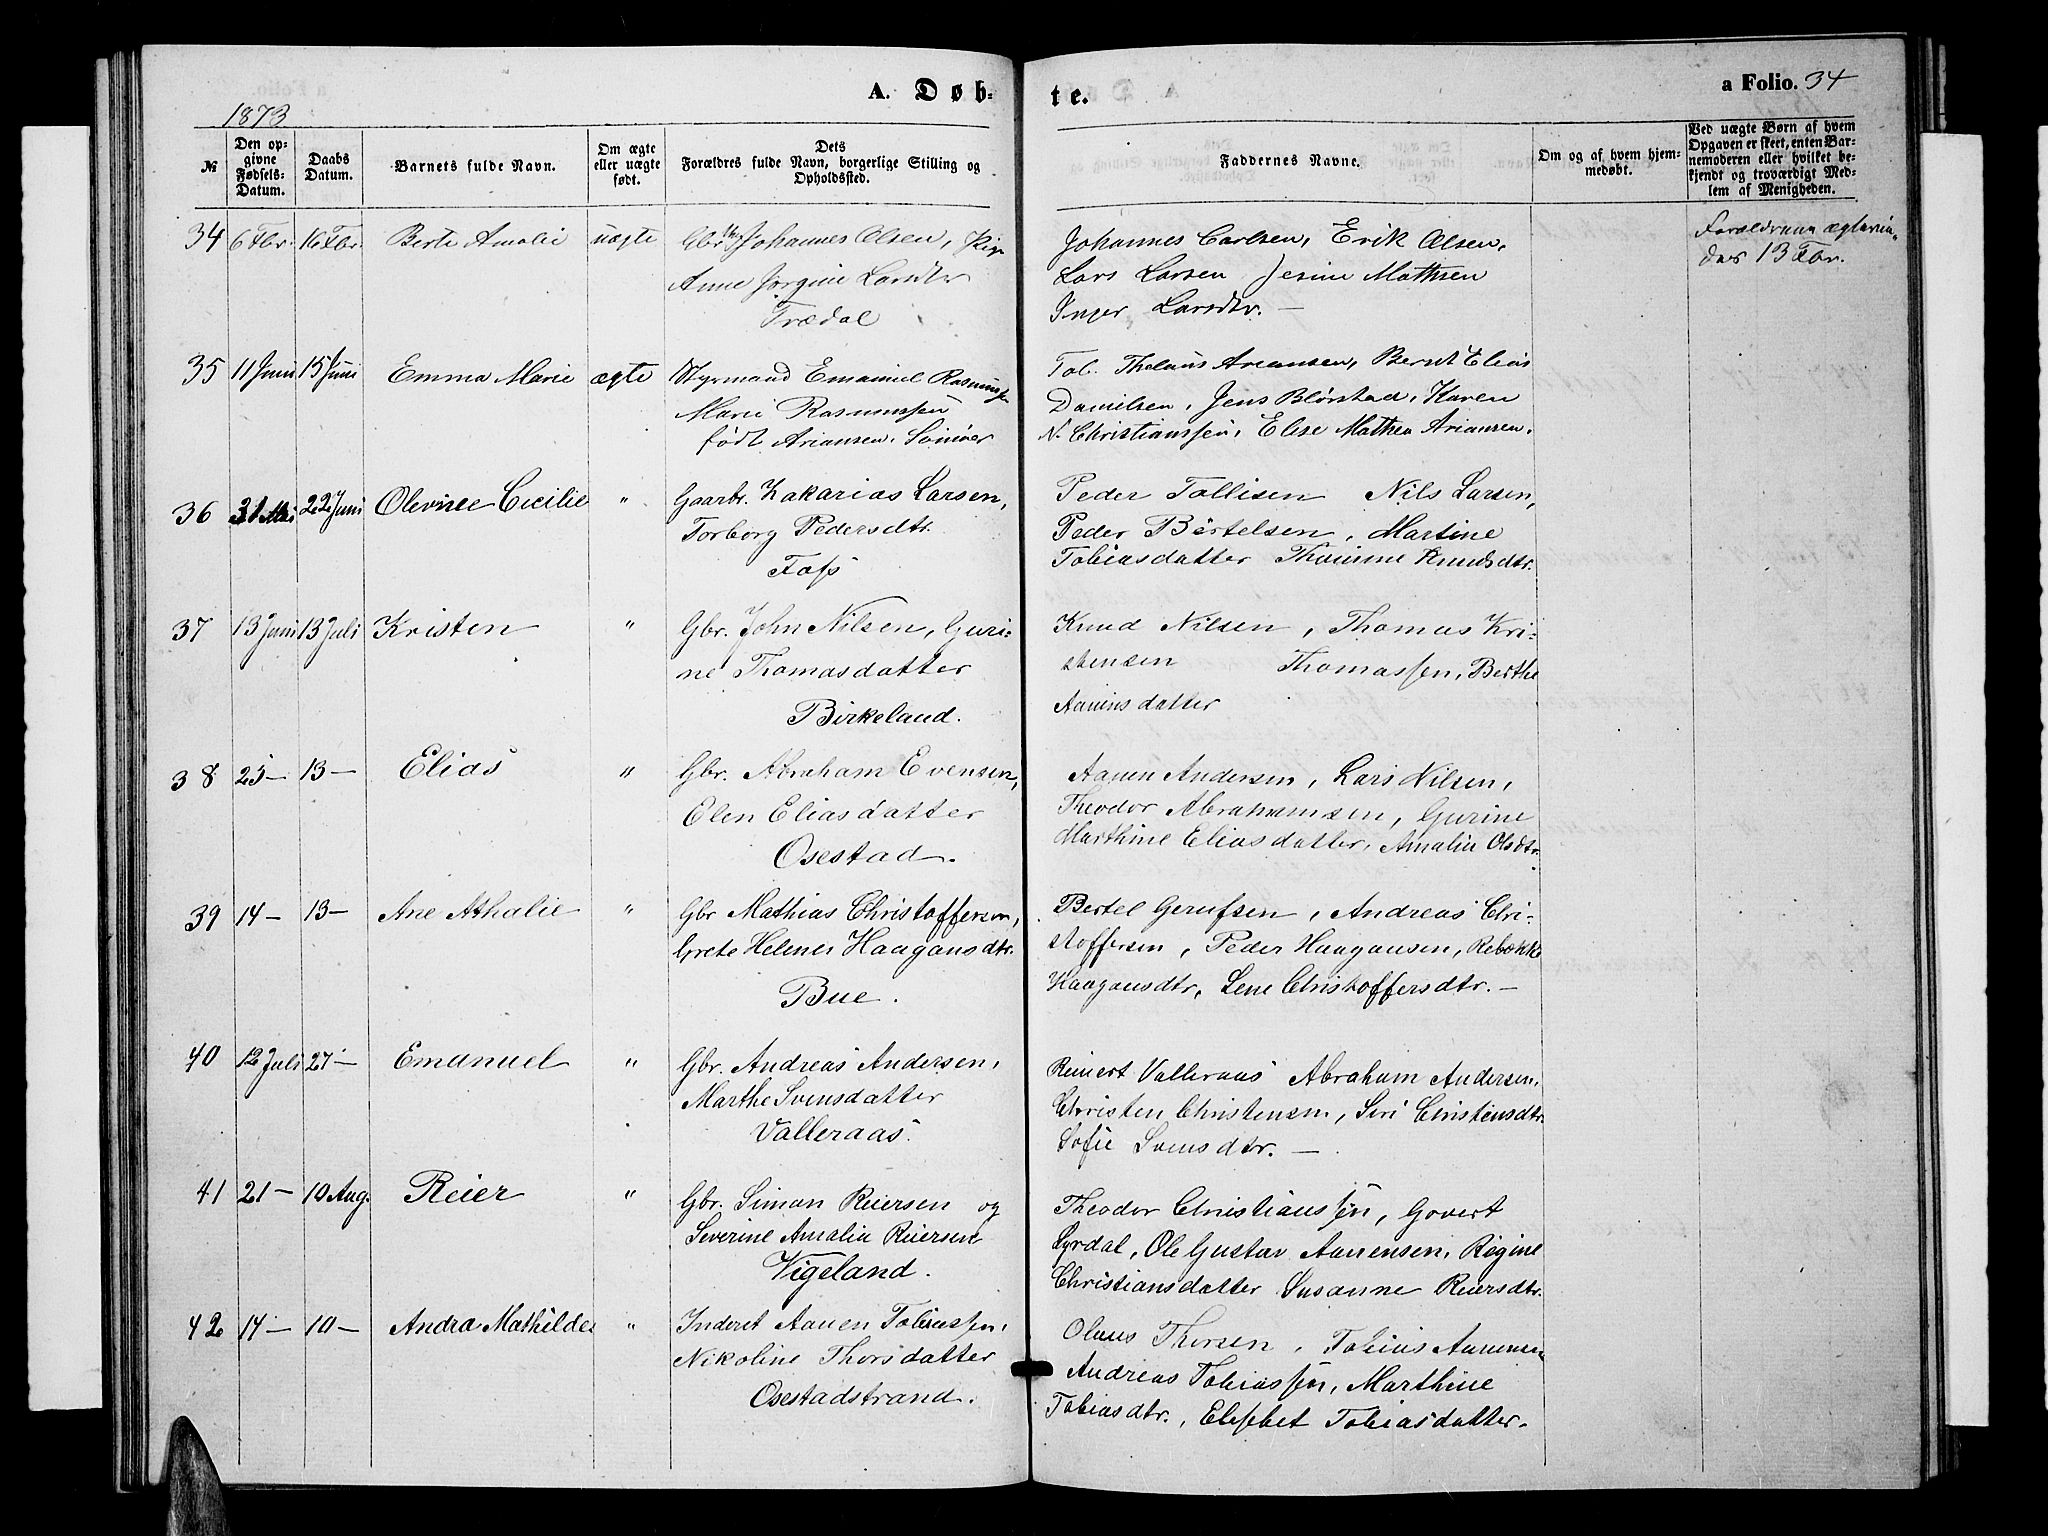 A. Døb-
te.
a Folio. 34
1873
№
Den op-
givne
Fødsels-
Datum.
Daabs
Datum.
Barnets fulde Navn.
Om ægte
eller uægte
født.
Dets
Forældres fulde Navn, borgerlige Stilling og
Opholdssted.
Faddernes Navne.
Om og af hvem hjem-
medøbt.
Ved uægte Børn af hvem
Opgaven er skeet, enten Bar-
nemoderen eller hvilket be-
kjendt og troværdigt Med-
lem af Menigheden.
34 6 Fbr. 16 Fbr. Berte Amalie uægte
Johannes Olsen, Pige
Anne Jørgine Larsdtr
Trædal
Johannes Carlsen, Erik Olsen,
Lars Larsen Jesine Mathsen
Inger Larsdtr. —
Forældrene
13 Fbr.
35 11 Juni 15 Juni Emma Marie ægte
Styrmand Emanuel Rasmussen
Marie Rasmussen
født Ariansen.
Tob. Ariansen, Bernt Elias
Danielsen, Jens Blørstad, Karen
N. Christianssen, Elise Mathea Ariansen.
36 31 Mai 22 Juni Cicilie "
Gaarbr. Zakarias Larsen,
Torborg Pedersdtr.
Foss
Peder Tallisen Nils Larsen,
Peder Bertelsen, Martine
Tobiasdatter Thomine Knudsdtr.
37 13 Juni 13 Juli Kristen "
Gbr. John Nilsen, Guri-
ne Thomasdatter
Birkeland.
Knud Nilsen, Thomas Kri-
stensen Thomassen, Berthe
Aanensdatter
38 25 — 13 — Elias "
Gbr. Abraham Evensen,
Elen Eliasdatter
Osestad.
Aanen Andersen, Lars Nilsen,
Theodor Abrahamsen, Gurine
Marthine Eliasdatter, Amalia Olsdtr.
39 14 — 13 — Ane Athalie "
Gbr Mathias Christoffersen,
Grete Helene Haagansdtr.
Bue.
Bertel Gerufsen, Andreas Chri-
stoffersen, Peder Haagansen, Rebekke
Haagansdtr, Lene Christoffersdtr. —
40 12 Juli 27 — Emanuel "
Gbr. Andreas Andersen,
Marthe Svensdatter
Valleraas.
Reinert Valleraas Abraham Andersen,
Christen Christensen, Siri Christensdtr.
Sofie Svensdtr. —
41 21 — 10 Aug. Reier "
Gbr. Simon Reiersen og
Severine Amalia Reiersen
Vigeland.
Theodor Christianssen, Govert
Lyrdal, Ole Gustav Aanensen, Regine
Christiansdatter Susanne Reiersdtr.
42 14 — 10 — Andra Mathilde "
Inderst Aanen Tobiassen,
Nikoline Thorsdatter
Osestadstrand.
Olaus Thorsen, Tobias Aanensen
Andreas Tobiassen, Marthine
Tobiasdtr., Elisebet Tobiasdatter.